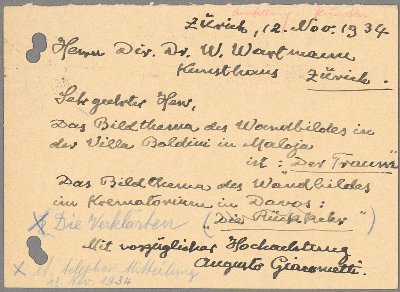 Ausstellung München
Zürich, 12. Nov. 1934
Herrn Dir. Dr. W. Wartmann
Kunsthaus Zürich.
Sehr geehrter Herr,
Das Bildthema des Wandbildes in
der Villa Baldini in Maloja
ist: „Der Traum"
Das Bildthema des Wandbildes
im Krematorium in Davos:
x Die Verklärten („Die Rückkehr")
Mit vorzüglicher Hochachtung
Augusto Giacometti.
x lt. telephon. Mitteilung
13. Nov. 1934